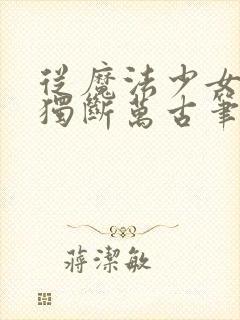 從魔法少女
獨斷萬古筆
蔣潔敏